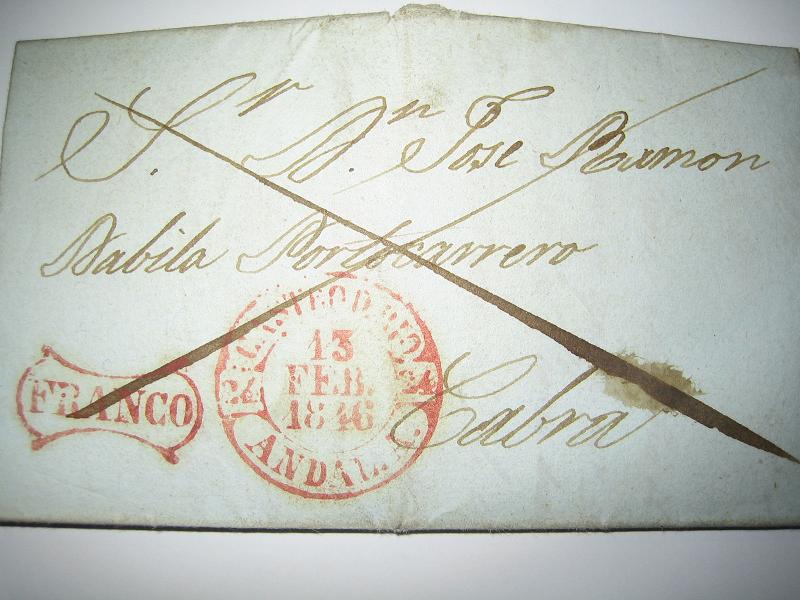 S.r D.n Jose Ramon
Dabila Portocarrero
Cabra
FRANCO
13
FEB.
1846
ANDAL.A